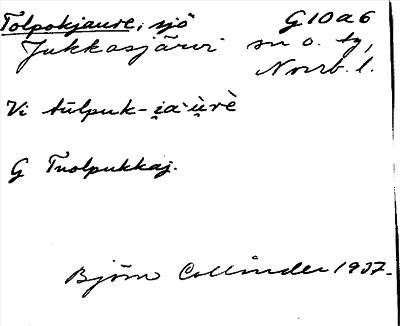 Tolpokjaure, sjö G10a6
Jukkasjärvi sn o. tg,
Norrb. l.
Vi tūlpuk-i̯a·u̯rè
G Tuolpukkaj.
Björn Collinder 1937.